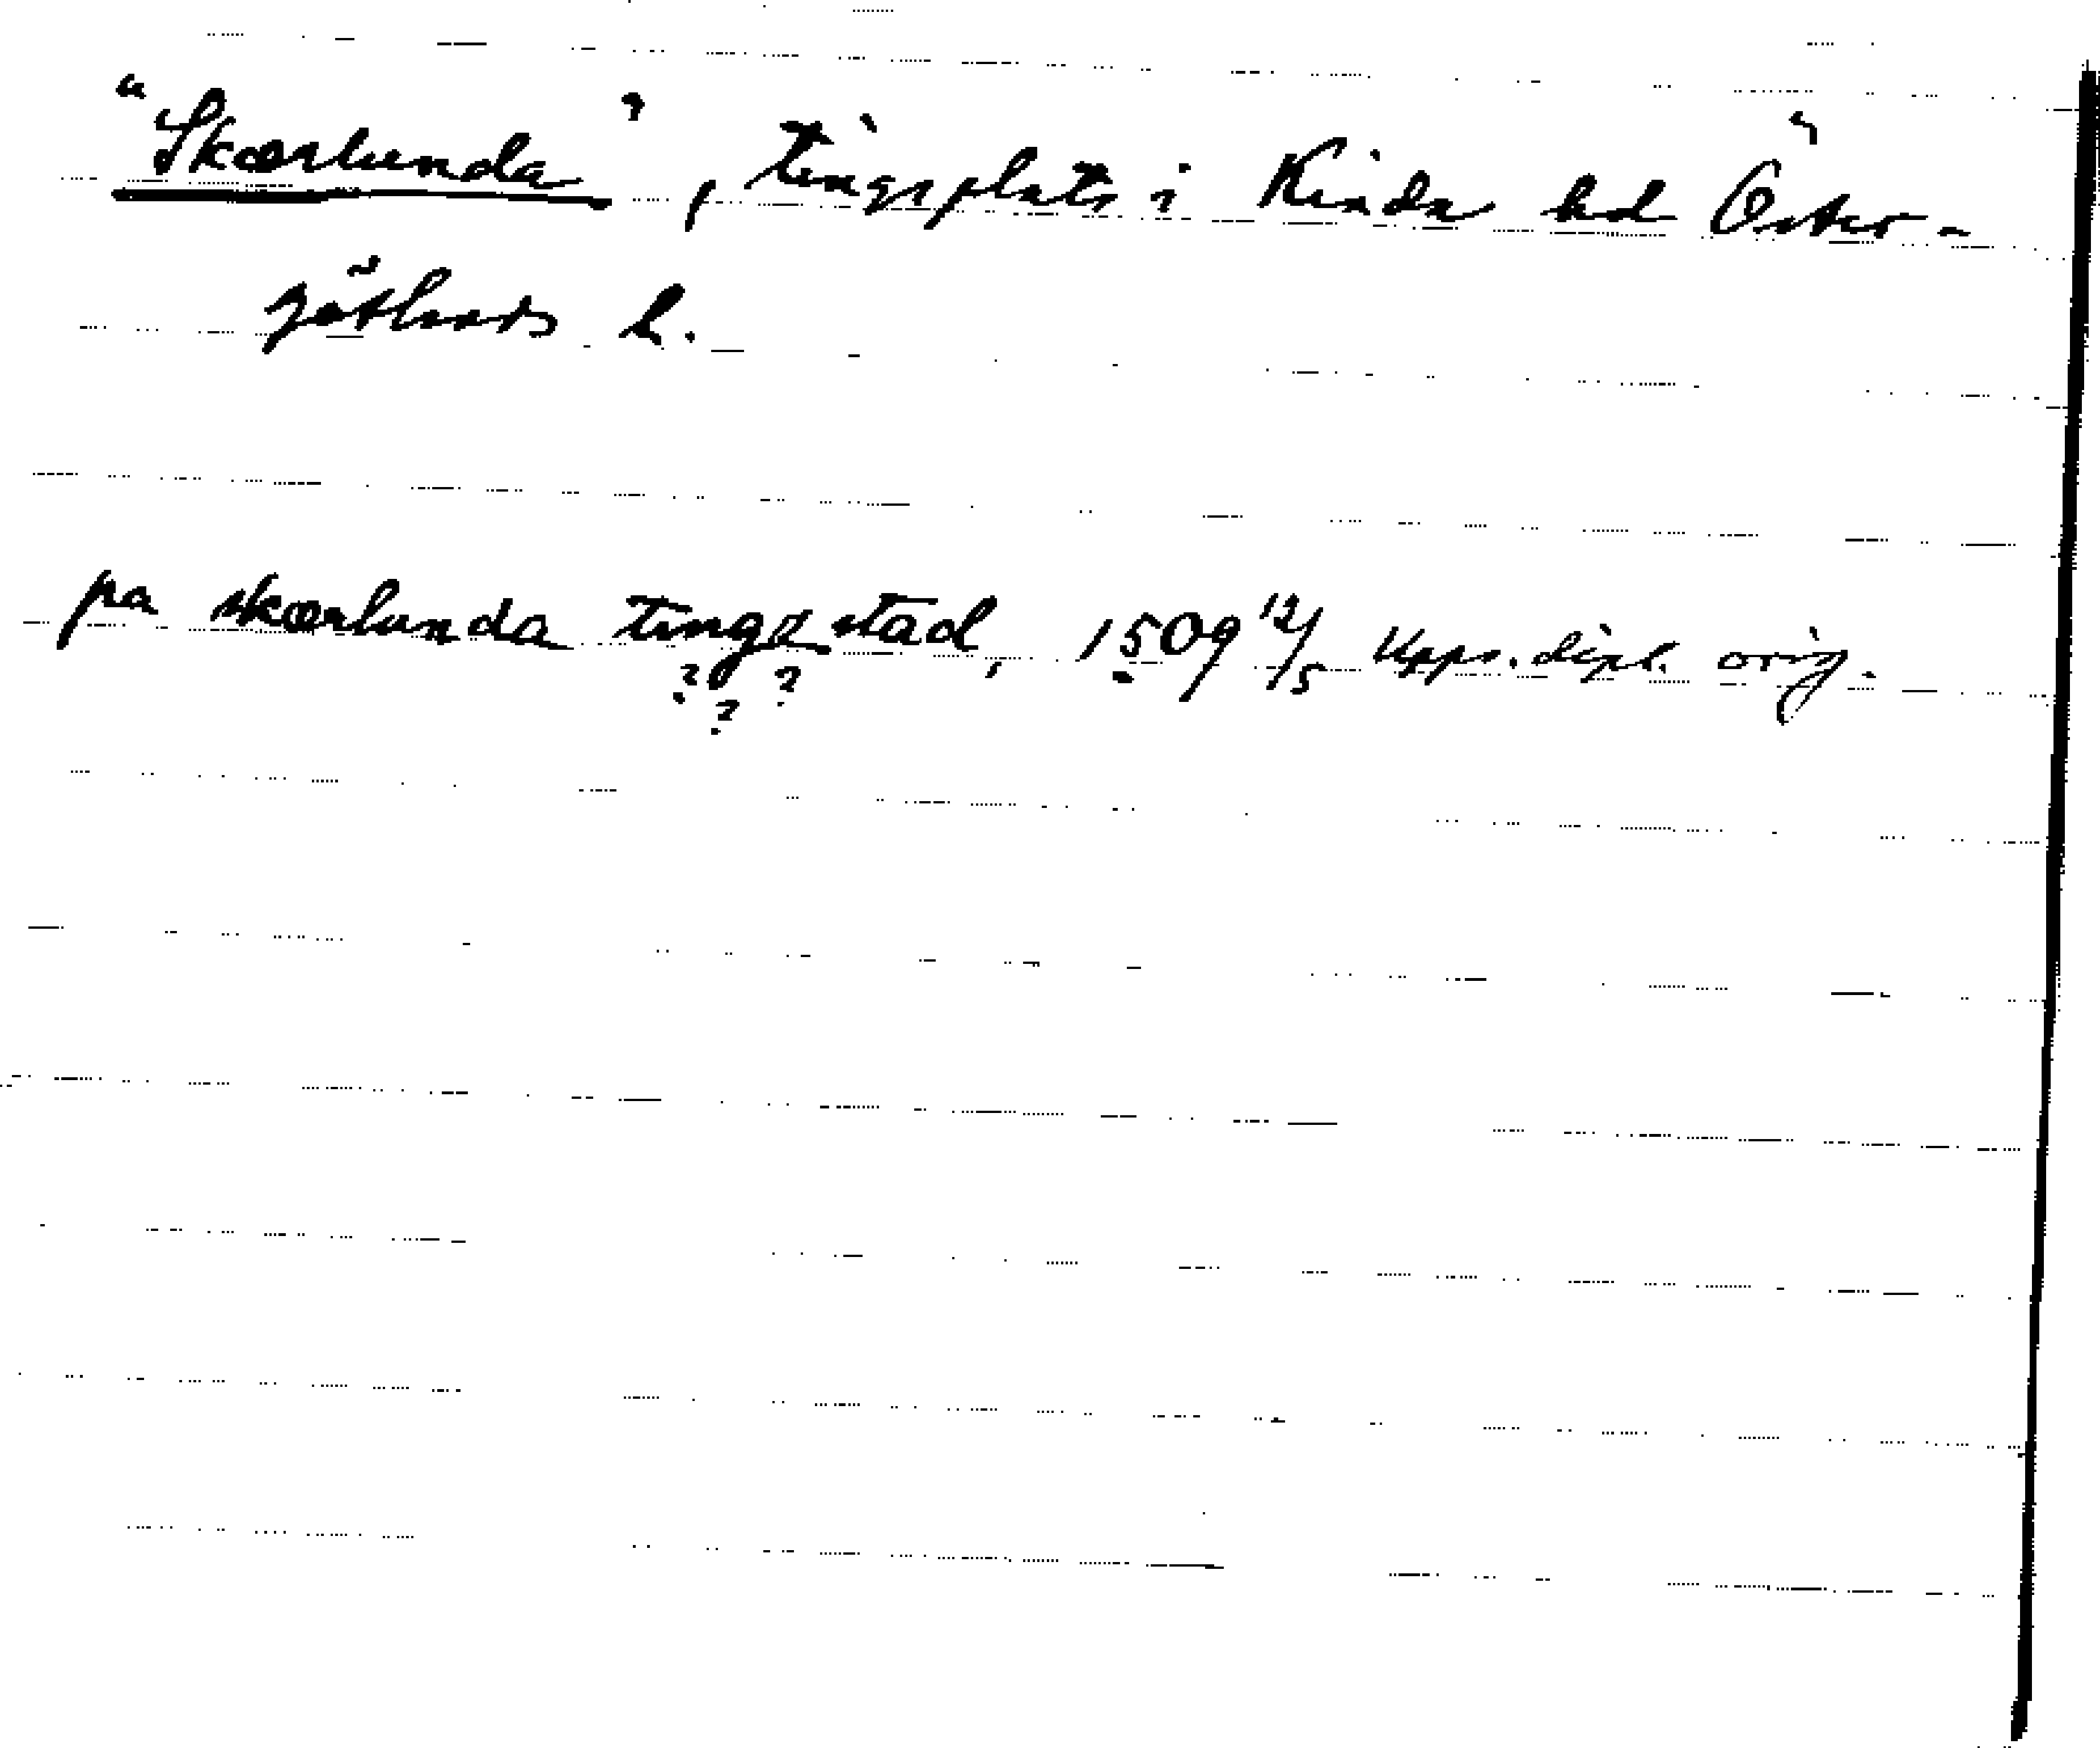 "Skærlunda", tingsplats i Kinda hd Öster-
götlands l.
pa skærlunda tinga stad, 1509 12/5 Upps. dipl. orig.
? ? ?